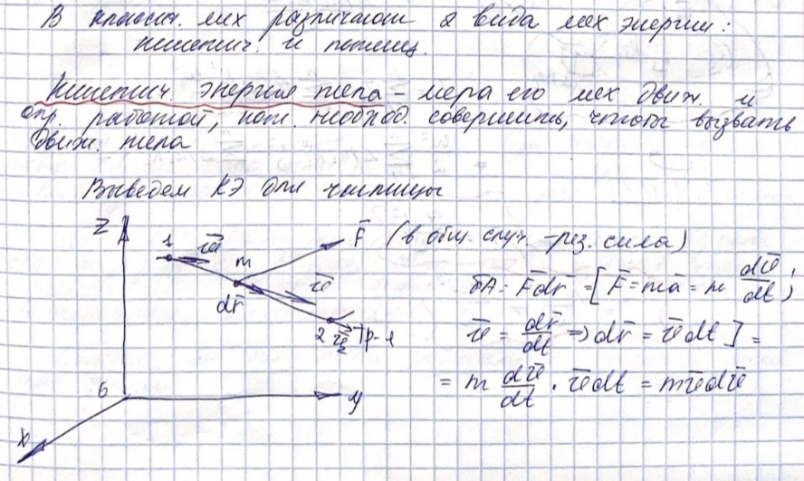 В классич. мех различают 2 вида мех энергии:
кинетич. и потенц.
Кинетич. энергия тела – мера его мех движ. и
опр. работой, кот. необход. совершить, чтобы вызвать
движ. тела
Выведем КЭ для частицы
z
1
m
F̄ (в общ. случ. – рез. сила)
v̄
dr̄
δA = F̄dr̄ = [F̄ = mā = m dv̄/dt;
2 v̄₂ Тр-я
v̄ = dr̄/dt ⇒ dr̄ = v̄dt] =
= m dv̄/dt · v̄dt = mv̄dv̄
y
x